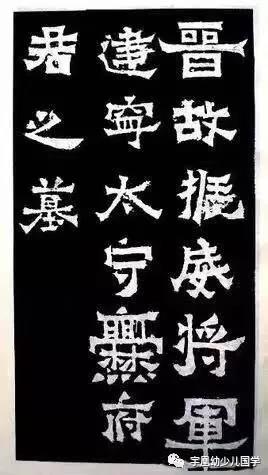 晉故振威将軍
建寧太守爨府
君之墓
宇凰幼少儿国学